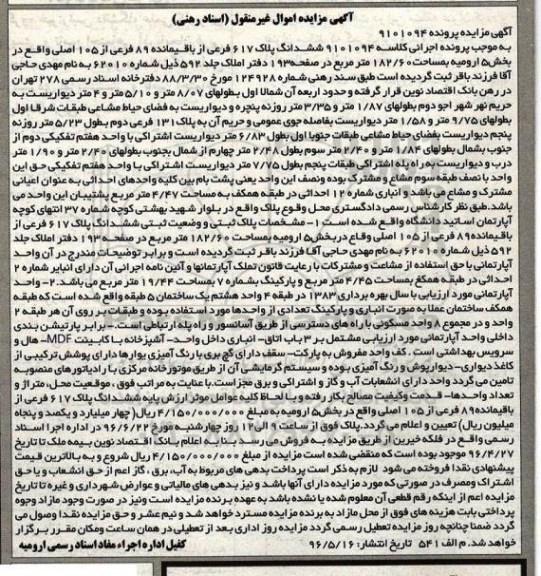 آگهی مزایده اموال غیرمنقول (اسناد رهنی)
آگهی مزایده پرونده ۹۱۰۱۰۹۴
به موجب پرونده اجرائی کلاسه ۹۱۰۱۰۹۴ ششدانگ پلاک ۶۱۷ فرعی از باقیمانده ۸۹ فرعی از ۱۰۵ اصلی واقع در
بخش۵ ارومیه بمساحت ۱۸۲/۶۰ متر مربع در صفحه ۱۹۳ دفتر املاک جلد ۵۹۲ ذیل شماره ۶۲۰۱۰ به نام مهدی حاجی
آقا فرزند باقر ثبت گردیده است طبق سند رهنی شماره ۱۲۴۹۲۸ مورخ ۸۸/۳/۳۰ دفترخانه اسناد رسمی ۲۷۸ تهران
در رهن بانک اقتصاد نوین قرار گرفته و حدود اربعه آن شمالا اول بطولهای ۸/۰۷ متر و ۵/۱۰ متر و ۴ متر دیواریست به
حریم نهر شهر اجو دوم بطولهای ۱/۸۷ متر و ۳/۳۵ متر روزنه پنجره و دیواریست به فضای حیاط مشاعی طبقات شرقا اول
بطولهای ۹/۷۵ متر و ۱/۵۸ متر دیواریست بفاصله جوی عمومی و حریم آن به پلاک ۱۳۱ فرعی دوم بطول ۵/۲۳ متر روزنه
پنجم دیواریست بفضای حیاط مشاعی طبقات جنوبا اول بطول ۶/۸۳ متر دیواریست اشتراکی با واحد هفتم تفکیکی دوم از
جنوب بشمال بطولهای ۱/۸۴ متر و ۲/۴۰ متر سوم بطول ۲/۴۸ متر چهارم از شمال بجنوب بطولهای ۲/۴۰ متر و ۱/۹۰ متر
درب و دیواریست به راه پله اشتراکی طبقات پنجم بطول ۷/۷۵ متر دیواریست اشتراکی با واحد هفتم تفکیکی حق این
واحد با نصف طبقه سوم مشاع و مشترک بوده ونصف این واحد یعنی پشت بام بین کلیه واحدهای احداثی به عنوان اعیانی
مشترک و مشاع می باشد و انباری شماره ۱۲ احداثی در طبقه همکف به مساحت ۴/۴۷ متر مربع پشتیبان این واحد می
باشد.طبق نظر کارشناس رسمی دادگستری محل وقوع پلاک واقع در بلوار شهید بهشتی کوچه شماره ۳۷ انتهای کوچه
آپارتمان اساتید دانشگاه واقع شده است ۱- مشخصات پلاک ثبتی و وضعیت ثبتی ششدانگ پلاک ۶۱۷ فرعی از
باقیمانده۸۹ فرعی از ۱۰۵ اصلی وقاع دربخش۵ ارومیه بمساحت ۱۸۲/۶۰ متر مربع در صفحه ۱۹۳ دفتر املاک جلد
۵۹۲ ذیل شماره ۶۲۰۱۰ به نام مهدی حاجی آقا فرزند باقر ثبت گردیده است و برابر توضیحات مندرج در آن واحد
آپارتمانی با حق استفاده از مشاعات و مشترکات با رعایت قانون تملک آپارتمانها و آئین نامه اجرائی آن دارای انباری شماره ۲
احداثی در طبقه همکف بمساحت ۴/۴۵ متر مربع و پارکینگ بشماره ۷ بمساحت ۱۹/۴۴ متر مربع می باشد.۲- واحد
آپارتمانی مورد ارزیابی با سال بهره برداری ۱۳۸۳ در طبقه ۴ واحد هشتم یک ساختمان ۵ طبقه واقع شده است که طبقه
همکف ساختمان عملا به صورت انباری و پارکینگ تعدادی از واحدها مورد استفاده بوده و طبقات بر روی آن هر طبقه ۲
واحد و در مجموع ۸ واحد مسکونی با راه های دسترسی از طریق آسانسور و راه پله ارتباطی است.- برابر پارتیشن بندی
داخلی واحد آپارتمانی مورد ارزیابی مشتمل بر ۳ باب اتاق- انباری داخل واحد- آشپزخانه با کابینت MDF- هال و
سرویس بهداشتی است . کف واحد مفروش به پارکت- سقف دارای گچ بری با رنگ آمیزی بوارها دارای پوشش ترکیبی از
کاغذ دیواری- دیوارپوش و رنگ آمیزی بوده و سیستم گرمایشی آن از طریق موتورخانه مرکزی با رادیاتورهای منصوبه
تامین می گردد واحد دارای انشعابات آب و گاز و اشتراکی و برق مجزاست.با عنایت به مراتب فوق ، موقعیت محل، متراژ و
تعداد واحدها- قدمت وکیفیت مصالح بکار رفته و با لحاظ کلیه عوامل موثر ارزش پایه ششدانگ پلاک ۶۱۷ فرعی از
باقیمانده۸۹ فرعی از ۱۰۵ اصلی واقع در بخش۵ ارومیه به مبلغ ۴/۱۵۰/۰۰۰/۰۰۰ ریال( چهار میلیارد و یکصد و پنجاه
میلیون ریال) تعیین و اعلام می گردد.پلاک فوق از ساعت ۹ الی ۱۲ روز چهارشنبه مورخ ۹۶/۶/۲۲ در اداره اجرا اسناد
رسمی واقع در فلکه خیرین از طریق مزایده به فروش می رسد.بنا به اعلام بانک اقتصاد نوین بیمه ملک تا تاریخ
۹۶/۴/۲۷ موجود بوده است که منقضی شده است مزایده از مبلغ ۴/۱۵۰/۰۰۰/۰۰۰ ریال شروع و به بالاترین قیمت
پیشنهادی نقدا فروخته می شود لازم به ذکر است پرداخت بدهی های مربوط به آب، برق ، گاز اعم از حق انشعاب و یا حق
اشتراک ومصرف در صورتی که مورد مزایده دارای آنها باشد و نیز بدهی های مالیاتی و عوارض شهرداری و غیره تا تاریخ
مزایده اعم از اینکه رقم قطعی آن معلوم شده یا نشده باشد به عهده برنده مزایده است ونیز در صورت وجود مازاد وجوه
پرداختی بابت هزینه های فوق از محل مازاد به برنده مزایده مسترد خواهد شد و نیم عشر و حق مزایده نقدا وصول می
گردد ضمنا چنانچه روز مزایده تعطیل رسمی گردد مزایده روز اداری بعد از تعطیلی در همان ساعت ومکان مقرر برگزار
خواهد شد. م الف ۵۴۱ تاریخ انتشار: ۹۶/۵/۱۶ کفیل اداره اجراء مفاد اسناد رسمی ارومیه